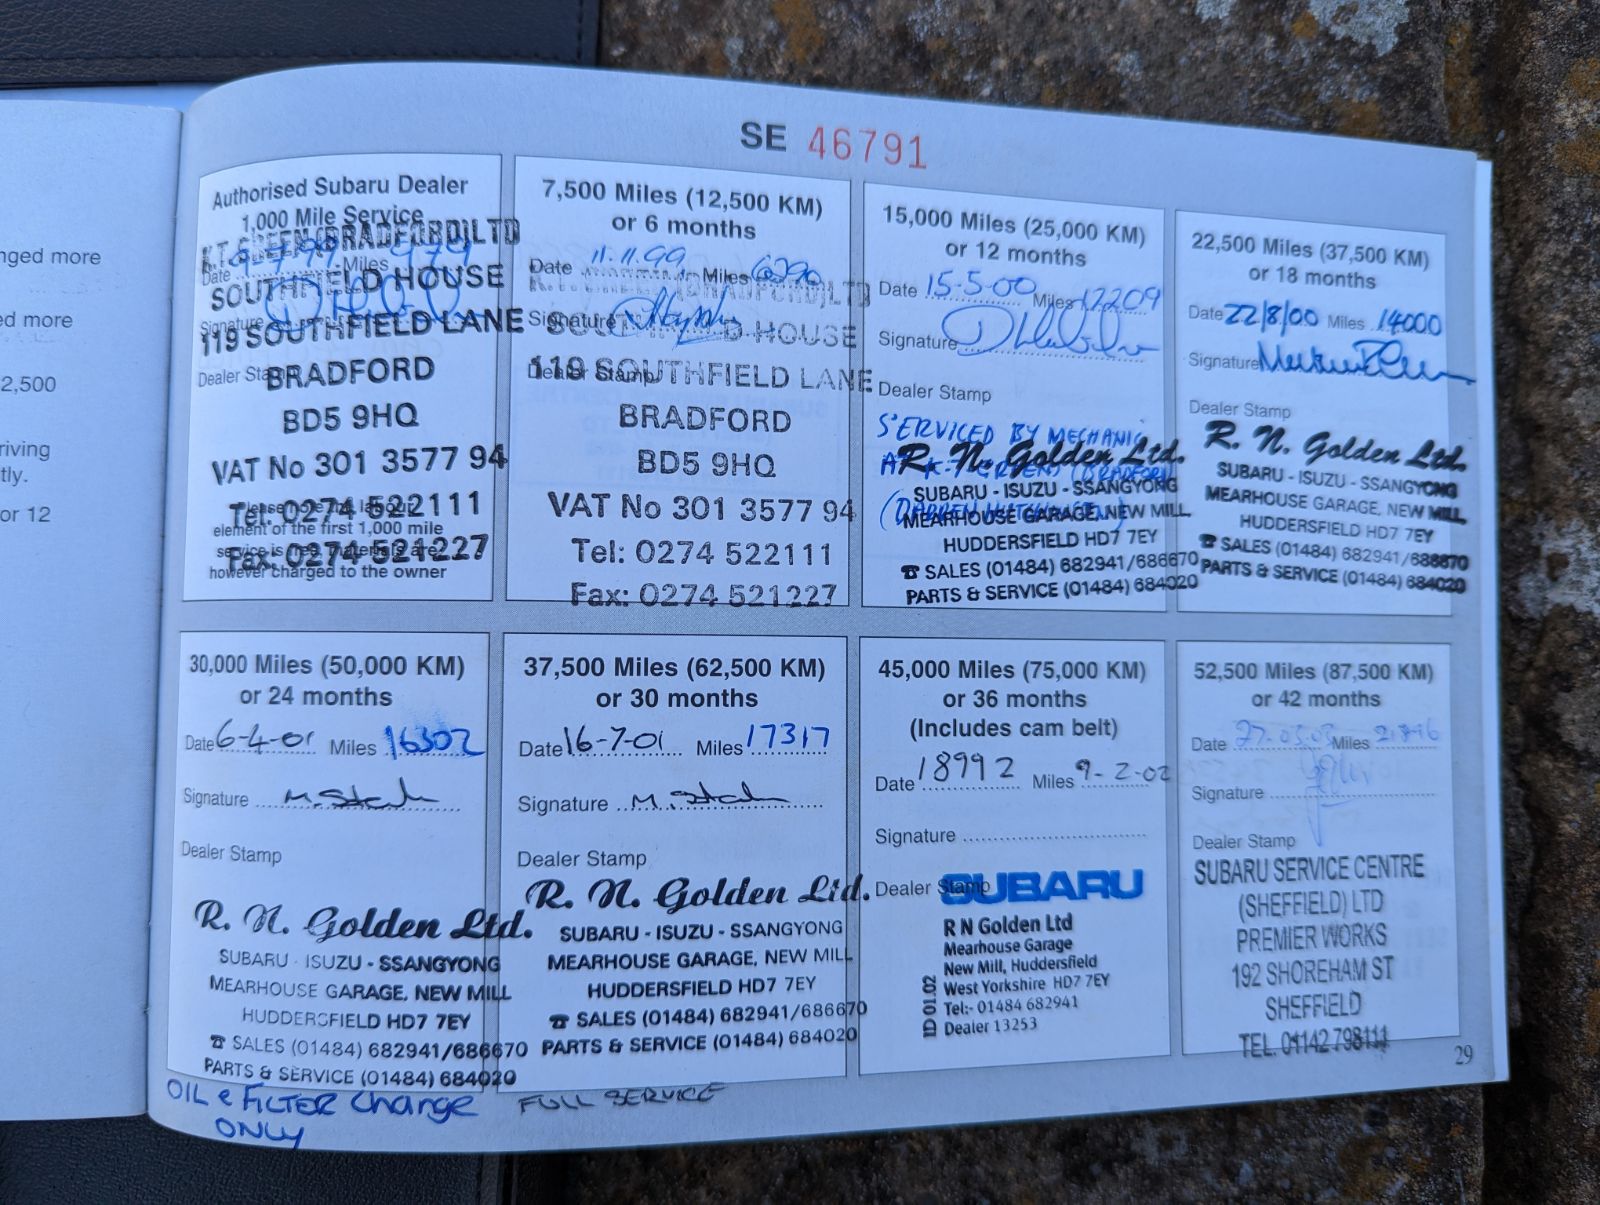 nged more
ed more
2,500
riving
tly.
or 12
SE 46791
Authorised Subaru Dealer
1,000 Mile Service
K.T. GREEN (BRADFORD) LTD
Date 9-7-99 Miles 979
SOUTHFIELD HOUSE
Signature
119 SOUTHFIELD LANE
Dealer Stamp
BRADFORD
BD5 9HQ
VAT No 301 3577 94
Tel: 0274 522111
Please note the labour
element of the first 1,000 mile
service is free, materials are
Fax: 0274 521227
however charged to the owner
7,500 Miles (12,500 KM)
or 6 months
Date 11.11.99 Miles 6290
K.T. GREEN (BRADFORD) LTD
Signature
SOUTHFIELD HOUSE
Dealer Stamp
119 SOUTHFIELD LANE
BRADFORD
BD5 9HQ
VAT No 301 3577 94
Tel: 0274 522111
Fax: 0274 521227
15,000 Miles (25,000 KM)
or 12 months
Date 15-5-00 Miles 12209
Signature
Dealer Stamp
SERVICED BY MECHANIC
AT K.T. GREEN (BRADFORD)
(DARREN
R. N. Golden Ltd.
SUBARU - ISUZU - SSANGYONG
MEARHOUSE GARAGE, NEW MILL,
HUDDERSFIELD HD7 7EY
☎ SALES (01484) 682941/686670
PARTS & SERVICE (01484) 684020
22,500 Miles (37,500 KM)
or 18 months
Date 22/8/00 Miles 14000
Signature
Dealer Stamp
R. N. Golden Ltd.
SUBARU - ISUZU - SSANGYONG
MEARHOUSE GARAGE, NEW MILL,
HUDDERSFIELD HD7 7EY
☎ SALES (01484) 682941/686670
PARTS & SERVICE (01484) 684020
30,000 Miles (50,000 KM)
or 24 months
Date 6-4-01 Miles 16302
Signature
Dealer Stamp
R. N. Golden Ltd.
SUBARU - ISUZU - SSANGYONG
MEARHOUSE GARAGE, NEW MILL
HUDDERSFIELD HD7 7EY
☎ SALES (01484) 682941/686670
PARTS & SERVICE (01484) 684020
OIL & FILTER Change
ONLY
37,500 Miles (62,500 KM)
or 30 months
Date 16-7-01 Miles 17317
Signature
Dealer Stamp
R. N. Golden Ltd.
SUBARU - ISUZU - SSANGYONG
MEARHOUSE GARAGE, NEW MILL
HUDDERSFIELD HD7 7EY
☎ SALES (01484) 682941/686670
PARTS & SERVICE (01484) 684020
FULL SERVICE
45,000 Miles (75,000 KM)
or 36 months
(Includes cam belt)
Date 18992 Miles 9-2-02
Signature
Dealer Stamp
SUBARU
R N Golden Ltd
Mearhouse Garage
New Mill, Huddersfield
West Yorkshire HD7 7EY
Tel:- 01484 682941
Dealer 13253
ID 01.02
52,500 Miles (87,500 KM)
or 42 months
Date 27.03.03 Miles 21846
Signature
Dealer Stamp
SUBARU SERVICE CENTRE
(SHEFFIELD) LTD
PREMIER WORKS
192 SHOREHAM ST
SHEFFIELD
TEL. 01142 798111
29